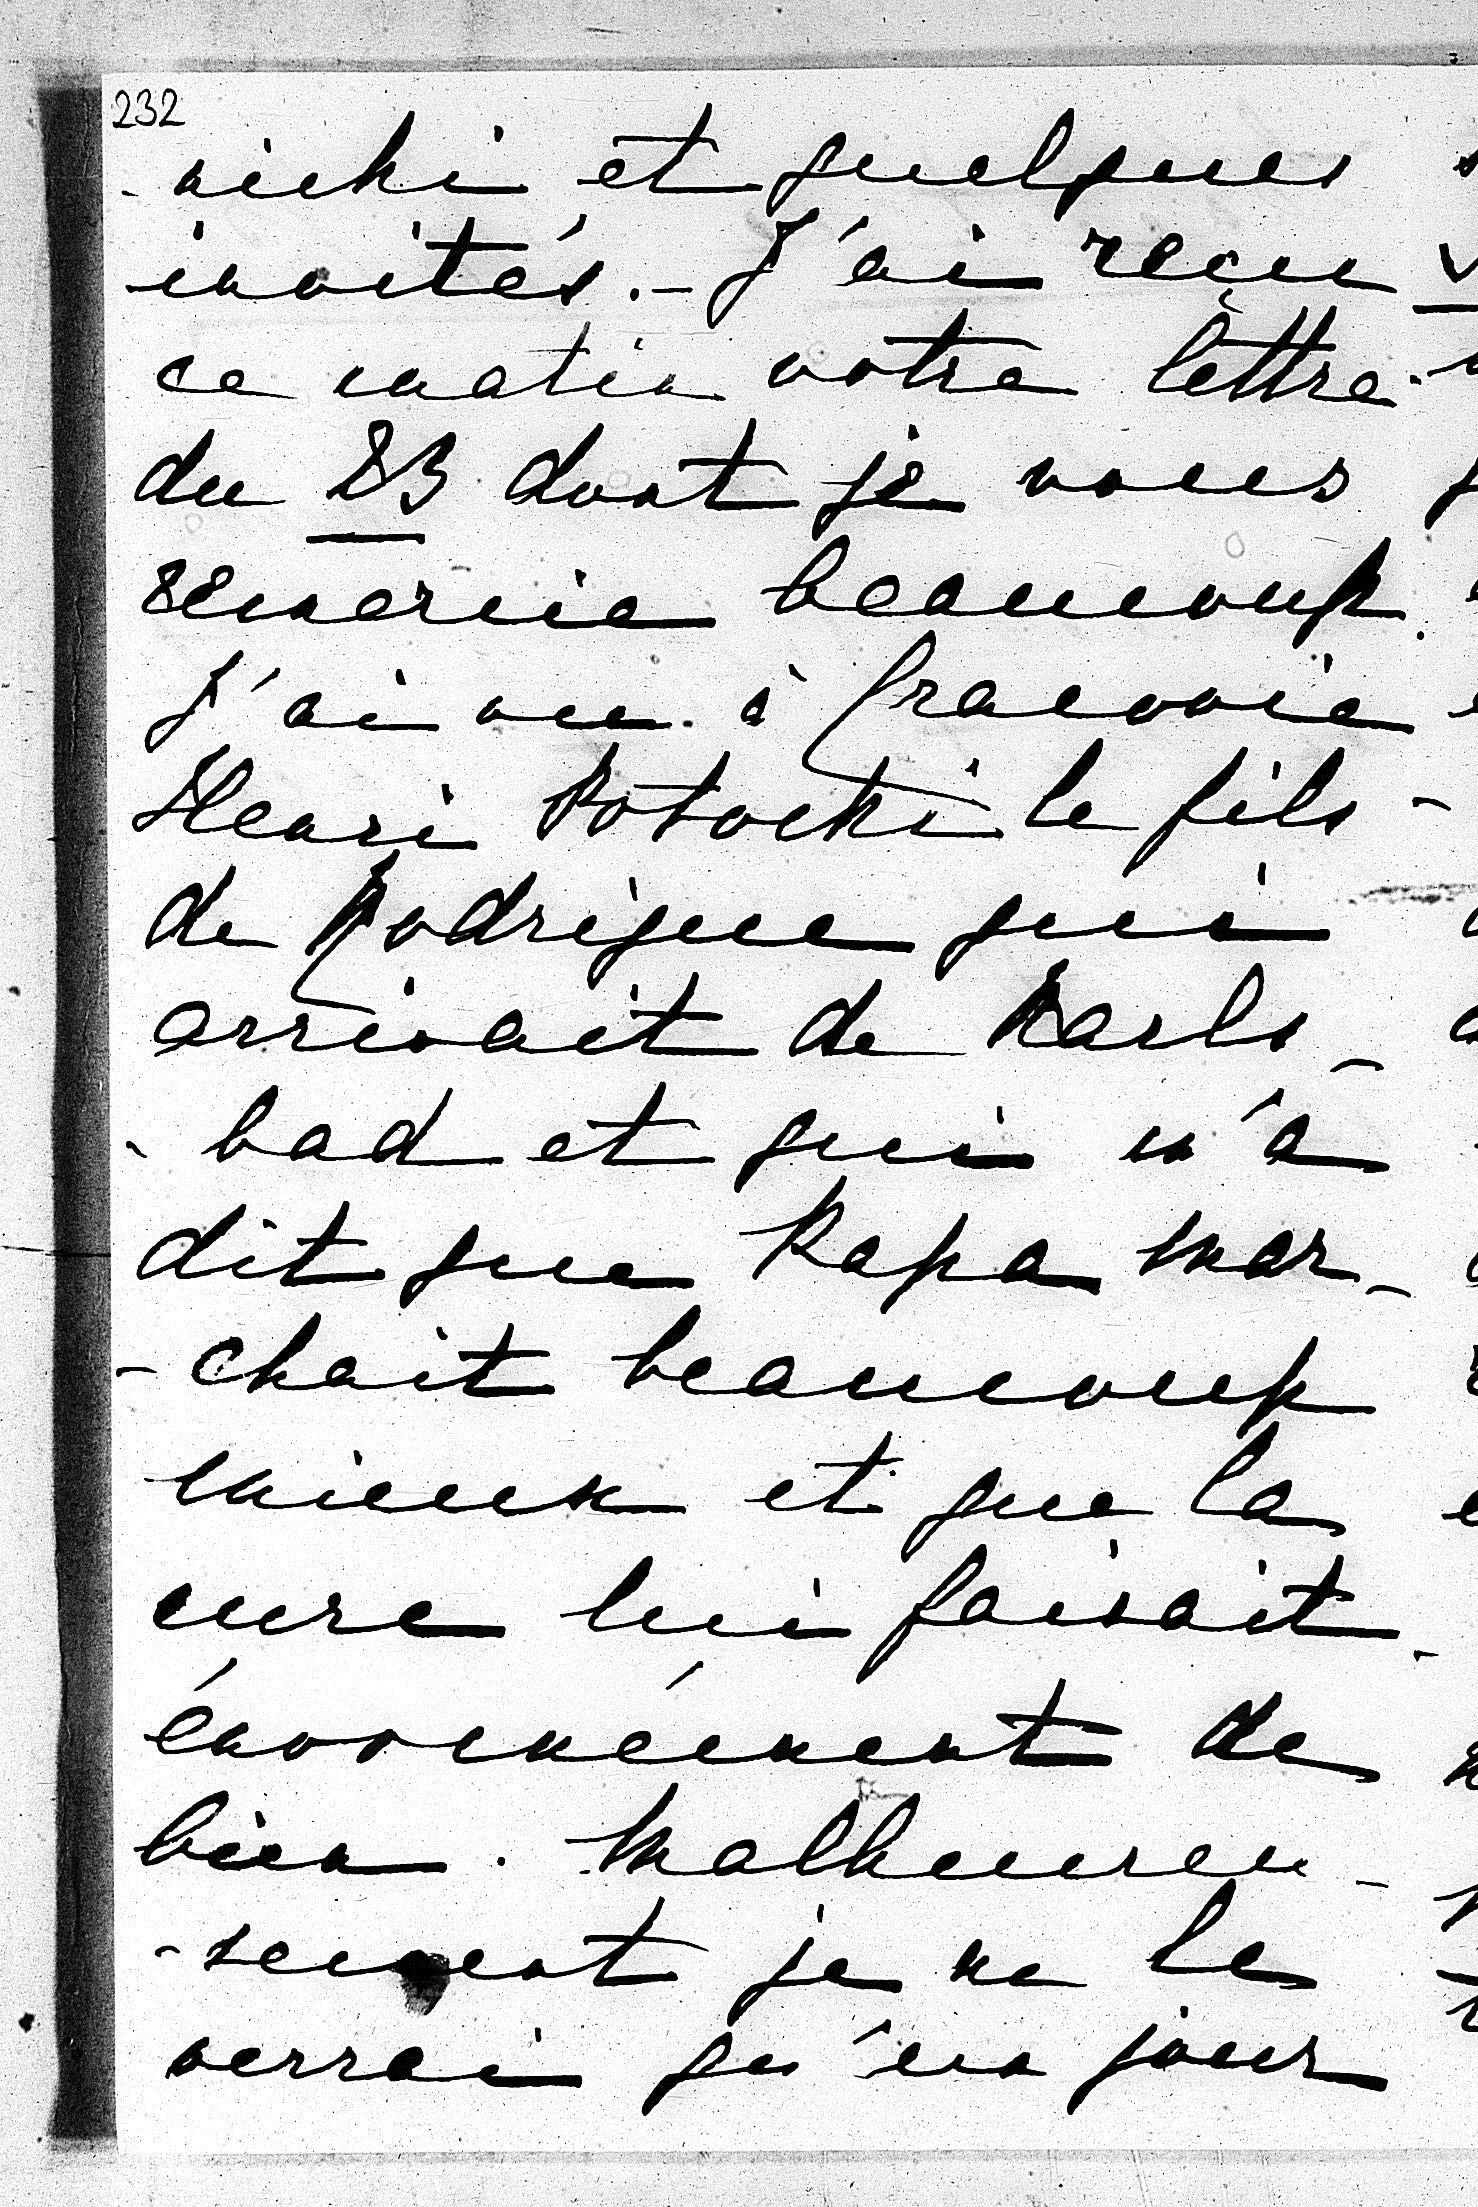 232
-vicki et quelques
invités.- J'ai reçu
ce matin votre lettre
du 23 dont je vous
remercie beaucoup.
J'ai vu à Cracovie
Henri Potocki le fils
de Rodrigue qui
arrivait de Karls-
-bad et qui m'a
dit que Papa mar-
-chait beaucoup
mieux et que la
cure lui faisait
énormément de
bien. Malheureu-
-sement je ne le
verrai qu'un jour